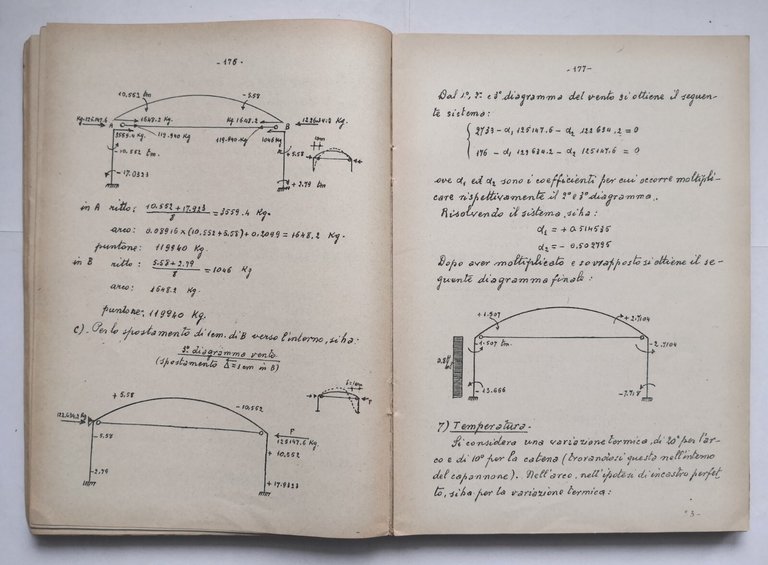 - 176 -
10.552 tm
- 5.58
Kg. 125147.6
1648.2 Kg.
Kg 1648.2
122634.2 Kg.
A
B
3559.4 Kg.
119.940 Kg
119.940 Kg
1046 Kg
- 10.552 tm.
+ 5.58
- 17.9323
+ 2.79 tm
in A ritto: 10.552 + 17.923 / 8 = 3559.4 Kg.
arco: 0.08916 x (10.552 + 5.58) + 0.2099 = 1648,2 Kg.
puntone: 119940 Kg.
in B ritto: 5.58 + 2.79 / 8 = 1046 Kg
arco: 1648.2 Kg
puntone: 119940 Kg.
C). Per lo spostamento di 1 cm. di B verso l'interno, si ha:
3° diagramma vento
(spostamento Δ = 1 cm in B)
+ 5.58
- 10.552
δ = 1 cm
F
- 5.58
F
125147.6 Kg.
+ 10.552
- 2.79
+ 17.9323
- 177 -
Dal 1°, 2° e 3° diagramma del vento si ottiene il seguen-
te sistema:
2733 - α₁ 125147.6 - α₂ 122634.2 = 0
176 - α₁ 122634.2 - α₂ 125147.6 = 0
ove α₁ ed α₂ sono i coefficienti per cui occorre moltipli-
care rispettivamente il 2° e 3° diagramma.
Risolvendo il sistema, si ha:
α₁ = + 0.514535
α₂ = - 0.502795
Dopo aver moltiplicato e sovrapposto si ottiene il se-
guente diagramma finale:
+ 1.907
+ 2.7104
- 1.507 tm.
- 2.7104
- 13.666
- 7.718
7) Temperatura.
Si considera una variazione termica, di 20° per l'ar-
co e di 10° per la catena (trovandosi questa nell'interno
del capannone). Nell'arco, nell'ipotesi di incastro perfet
to, si ha per la variazione termica: